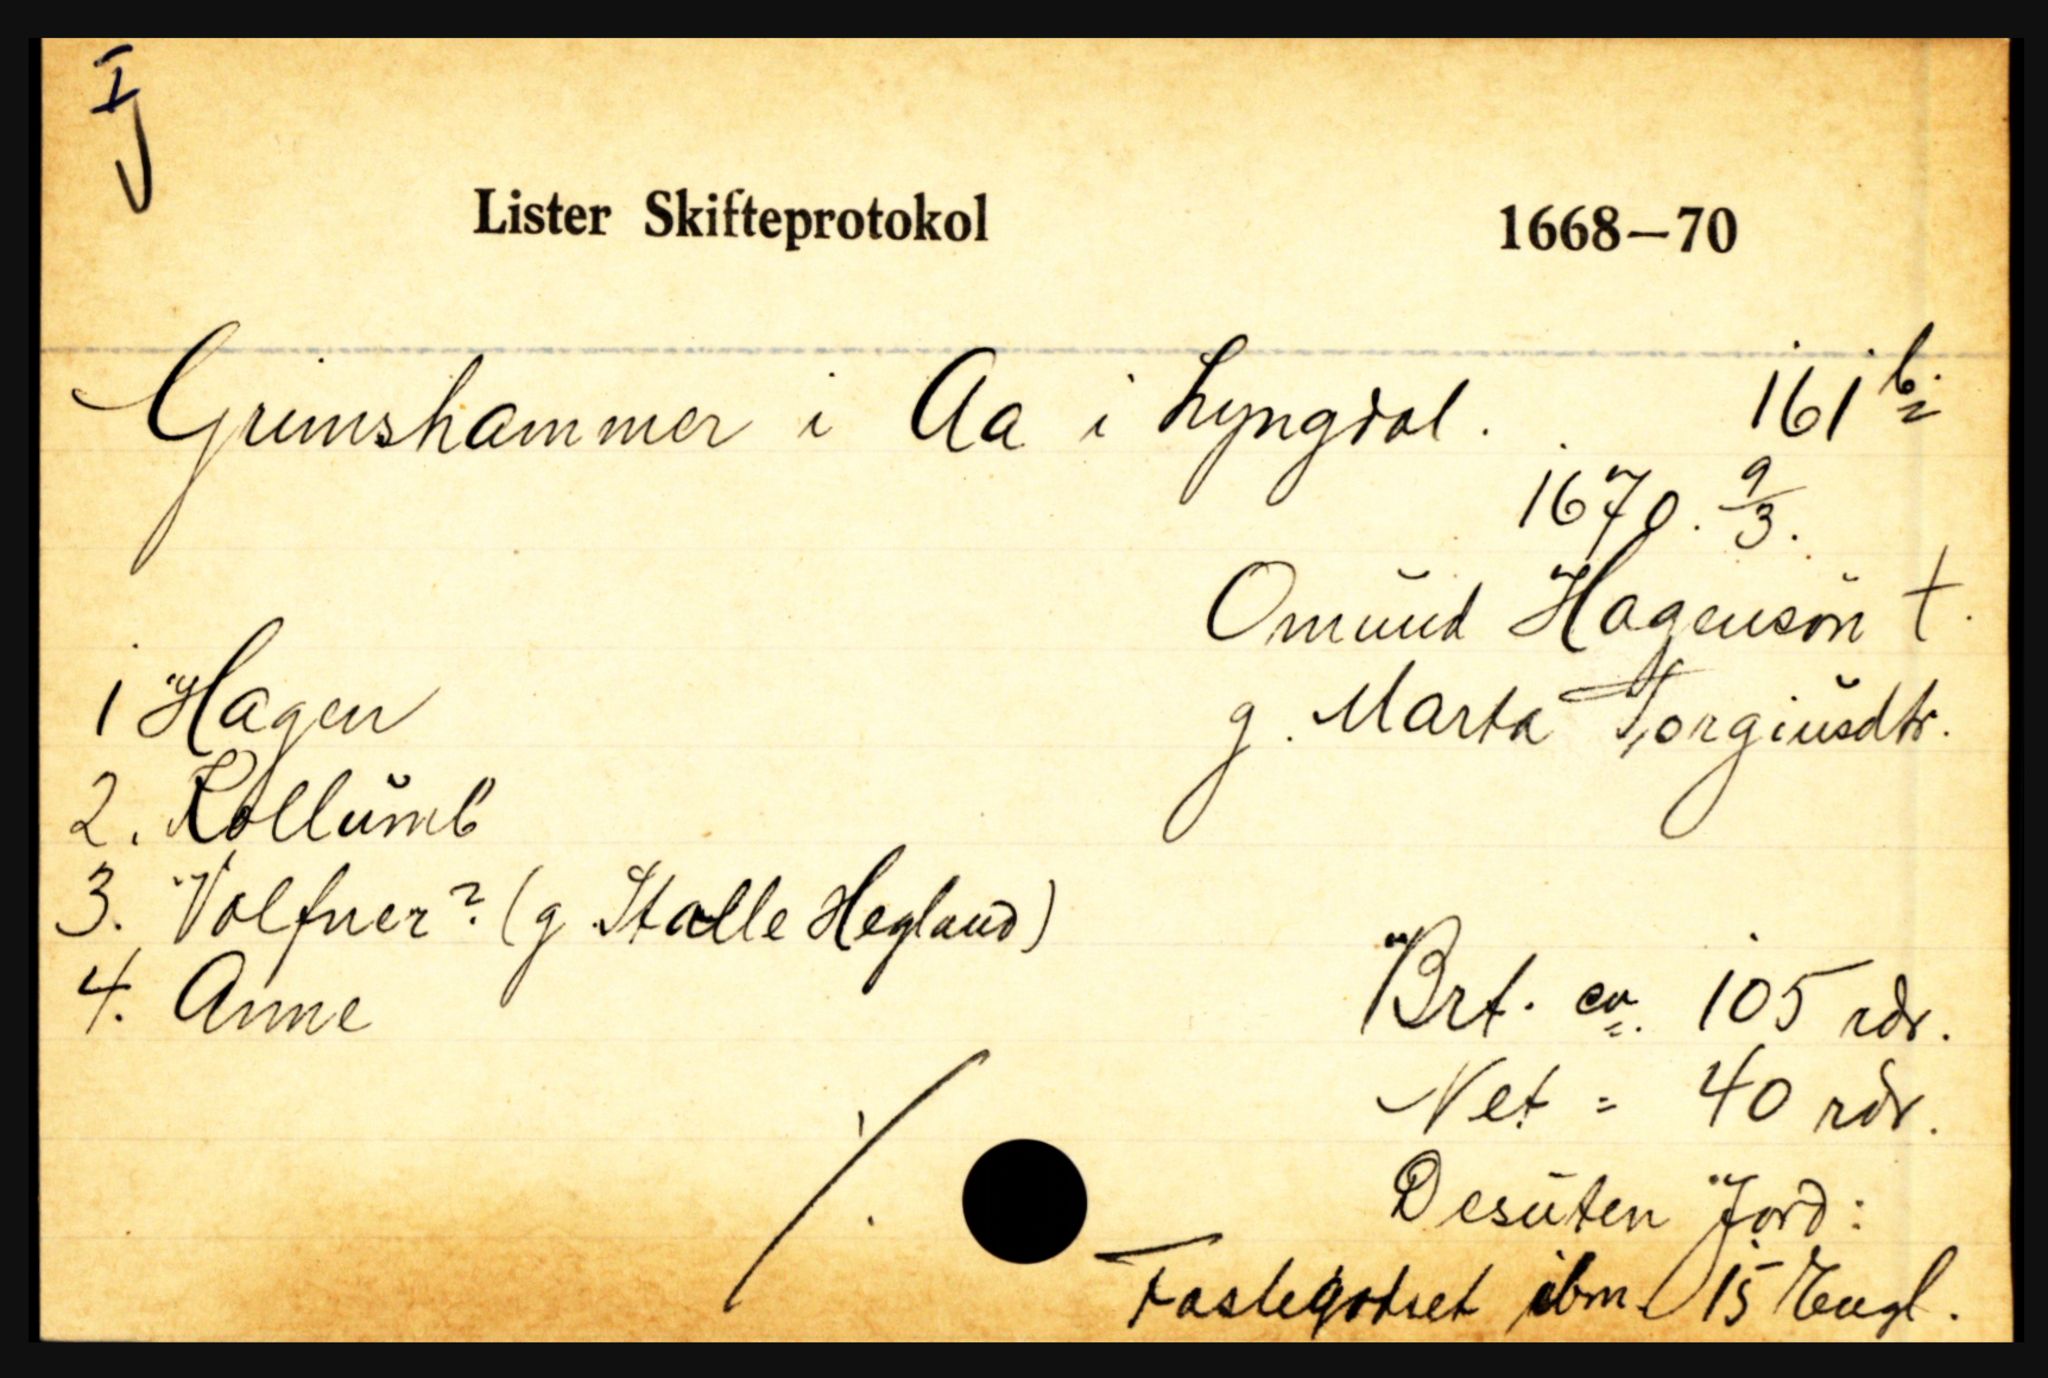 I
J
Lister Skifteprotokol 1668—70
Grimshammer i Aa i Lyngdal. 161 b.
1670. 9/3.
Omund Hagensøn †.
g. Marta Torgiusdtr.
1 Hagen
2. Kollumb
3. Volfner? (g. Stalle Hegland)
4. Anne
Brt. ca. 105 rdr.
Net = 40 rdr.
Desuten Jord:
Fastegodset ibm. 15 Engl.
·/.